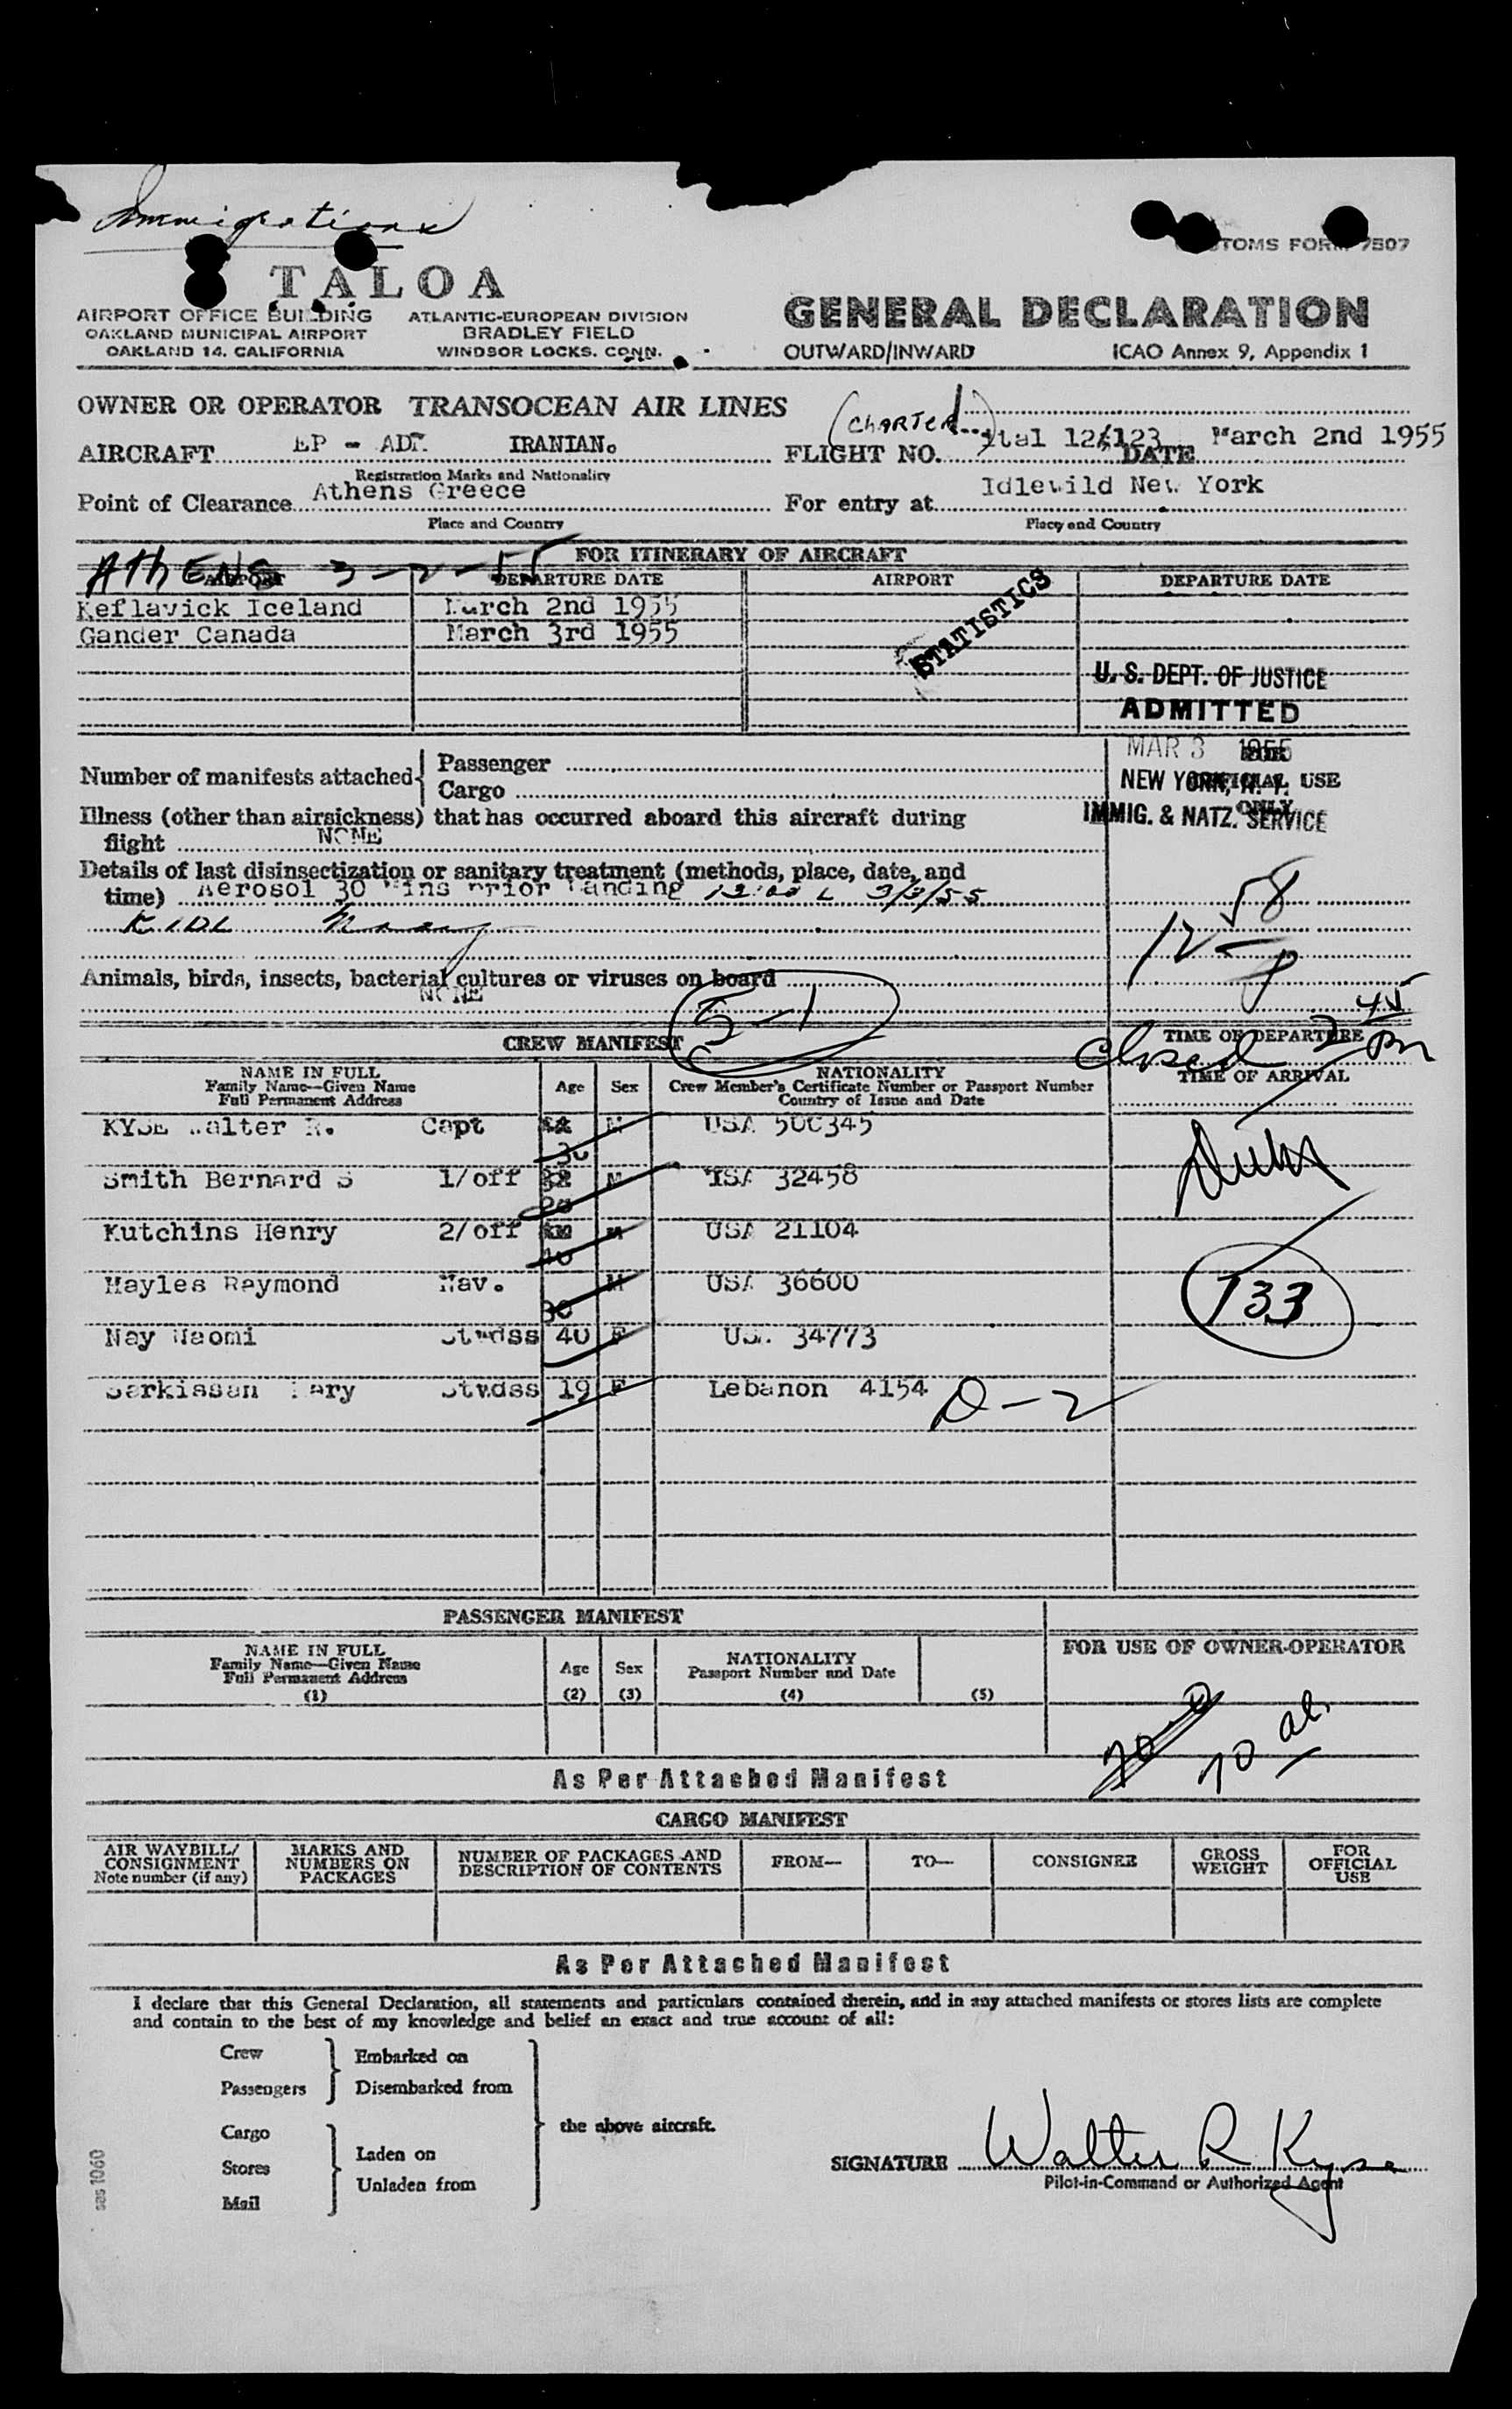 Immigrations
CUSTOMS FORM 7507
TALOA
AIRPORT OFFICE BUILDING
OAKLAND MUNICIPAL AIRPORT
OAKLAND 14, CALIFORNIA
ATLANTIC-EUROPEAN DIVISION
BRADLEY FIELD
WINDSOR LOCKS, CONN.
GENERAL DECLARATION
OUTWARD/INWARD ICAO Annex 9, Appendix 1
OWNER OR OPERATOR TRANSOCEAN AIR LINES
(CHARTER)
AIRCRAFT EP - AD IRANIAN. FLIGHT NO. 123 DATE March 2nd 1955
Registration Marks and Nationality
Point of Clearance Athens Greece For entry at Idlewild New York
Place and Country Place and Country
FOR ITINERARY OF AIRCRAFT
AThENS 3-2-55
AIRPORT DEPARTURE DATE AIRPORT DEPARTURE DATE
Keflavick Iceland March 2nd 1955
Gander Canada March 3rd 1955
STATISTICS
U. S. DEPT. OF JUSTICE
ADMITTED
MAR 3 1955
NEW YORK, N. Y.
IMMIG. & NATZ. SERVICE
FOR
OFFICIAL USE
ONLY
Number of manifests attached { Passenger
Cargo
Illness (other than airsickness) that has occurred aboard this aircraft during
flight NONE
Details of last disinsectization or sanitary treatment (methods, place, date, and
time) Aerosol 30 Mins prior Landing 12:00 L 3/3/55
KIDL
58
12-8
Animals, birds, insects, bacterial cultures or viruses on board
NONE
5-1
CREW MANIFEST
TIME OF DEPARTURE
Closed 2 45 Pm
TIME OF ARRIVAL
NAME IN FULL
Family Name—Given Name
Full Permanent Address
Age Sex
NATIONALITY
Crew Member's Certificate Number or Passport Number
Country of Issue and Date
KYSE Walter R. Capt M USA 500345
Smith Bernard S 1/off M USA 32458
Kutchins Henry 2/off 40 M USA 21104
Mayles Raymond Nav. 30 M USA 36600
Nay Naomi Stwdss 40 F USA 34773
Sarkissan Mary Stwdss 19 F Lebanon 4154 D-2
133
PASSENGER MANIFEST
NAME IN FULL
Family Name—Given Name
Full Permanent Address
(1)
Age
(2)
Sex
(3)
NATIONALITY
Passport Number and Date
(4)
(5)
FOR USE OF OWNER-OPERATOR
70-0
70 al.
As Per Attached Manifest
CARGO MANIFEST
AIR WAYBILL/
CONSIGNMENT
Note number (if any)
MARKS AND
NUMBERS ON
PACKAGES
NUMBER OF PACKAGES AND
DESCRIPTION OF CONTENTS
FROM—
TO—
CONSIGNEE
GROSS
WEIGHT
FOR
OFFICIAL
USE
As Per Attached Manifest
I declare that this General Declaration, all statements and particulars contained therein, and in any attached manifests or stores lists are complete
and contain to the best of my knowledge and belief an exact and true account of all:
Crew
Passengers
Embarked on
Disembarked from
Cargo
Stores
Mail
Laden on
Unladen from
the above aircraft.
SIGNATURE Walter R Kyse
Pilot-in-Command or Authorized Agent
sas 1060